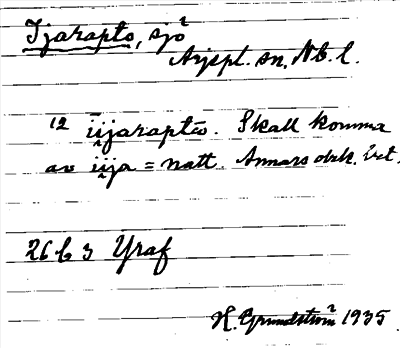 Ijarapto, sjö
Arjepl. sn, Nb. l.
12 i̯ijaraptō. Skall komma
av i̯ija = natt. Annars obek.
26 b 3 Yraf
H. Grundström 1935